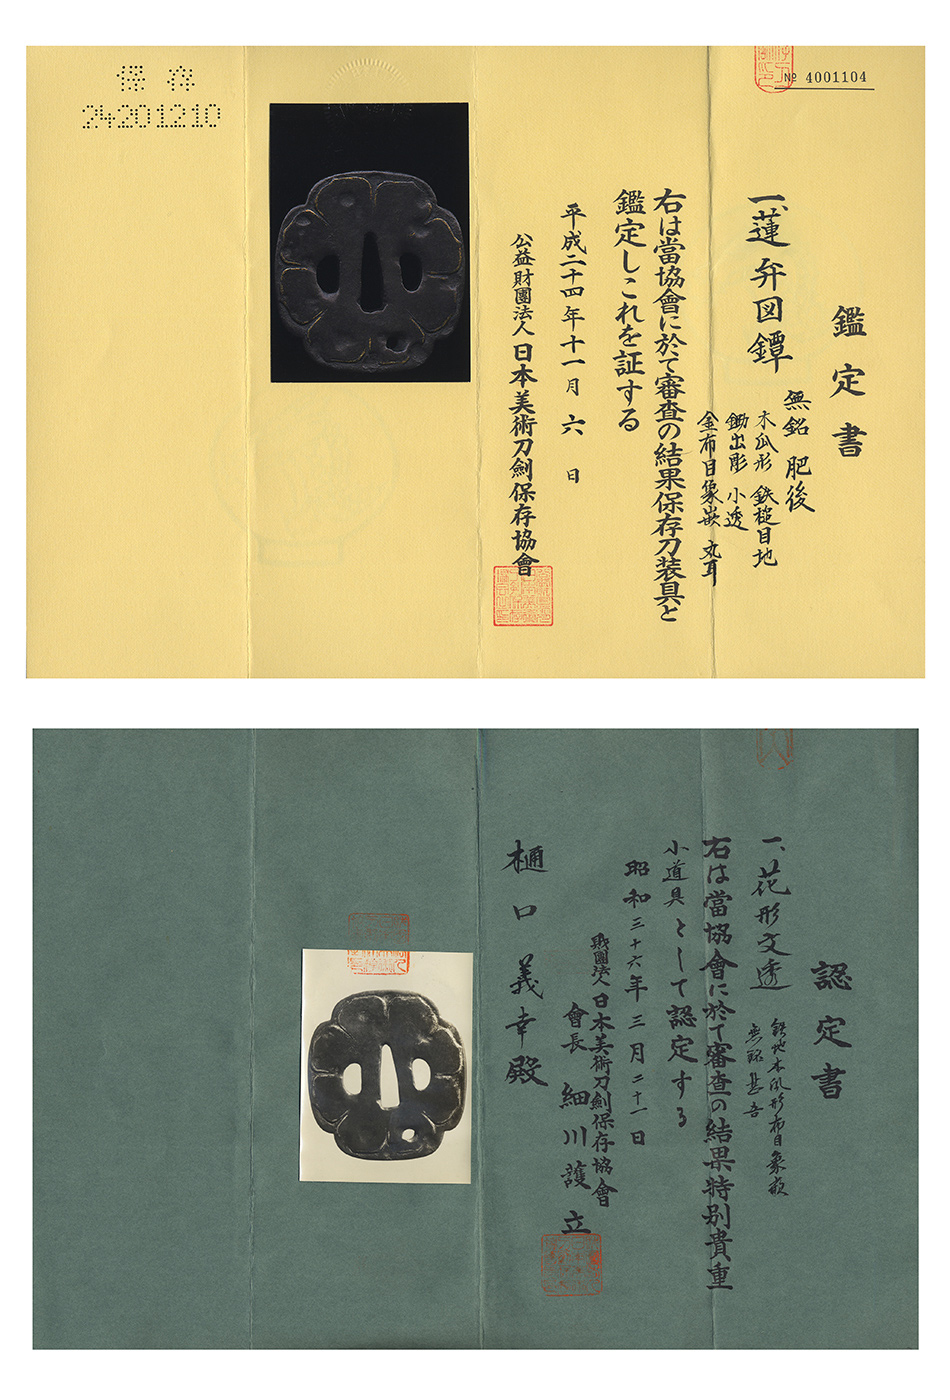 保存
24201210
№ 4001104
鑑定書
一、蓮弁図鐔
無銘 肥後
木瓜形 鉄槌目地
鋤出彫 小透
金布目象嵌 丸耳
右は當協會に於て審査の結果保存刀装具と
鑑定しこれを証する
平成二十四年十一月六日
公益財團法人日本美術刀劍保存協會
認定書
一、花形文透
鉄地木瓜形布目象嵌
無銘甚吾
右は當協會に於て審査の結果特別貴重
小道具として認定する
昭和三十六年三月二十一日
財團法人日本美術刀劍保存協會
會長 細川護立
樋口義幸殿